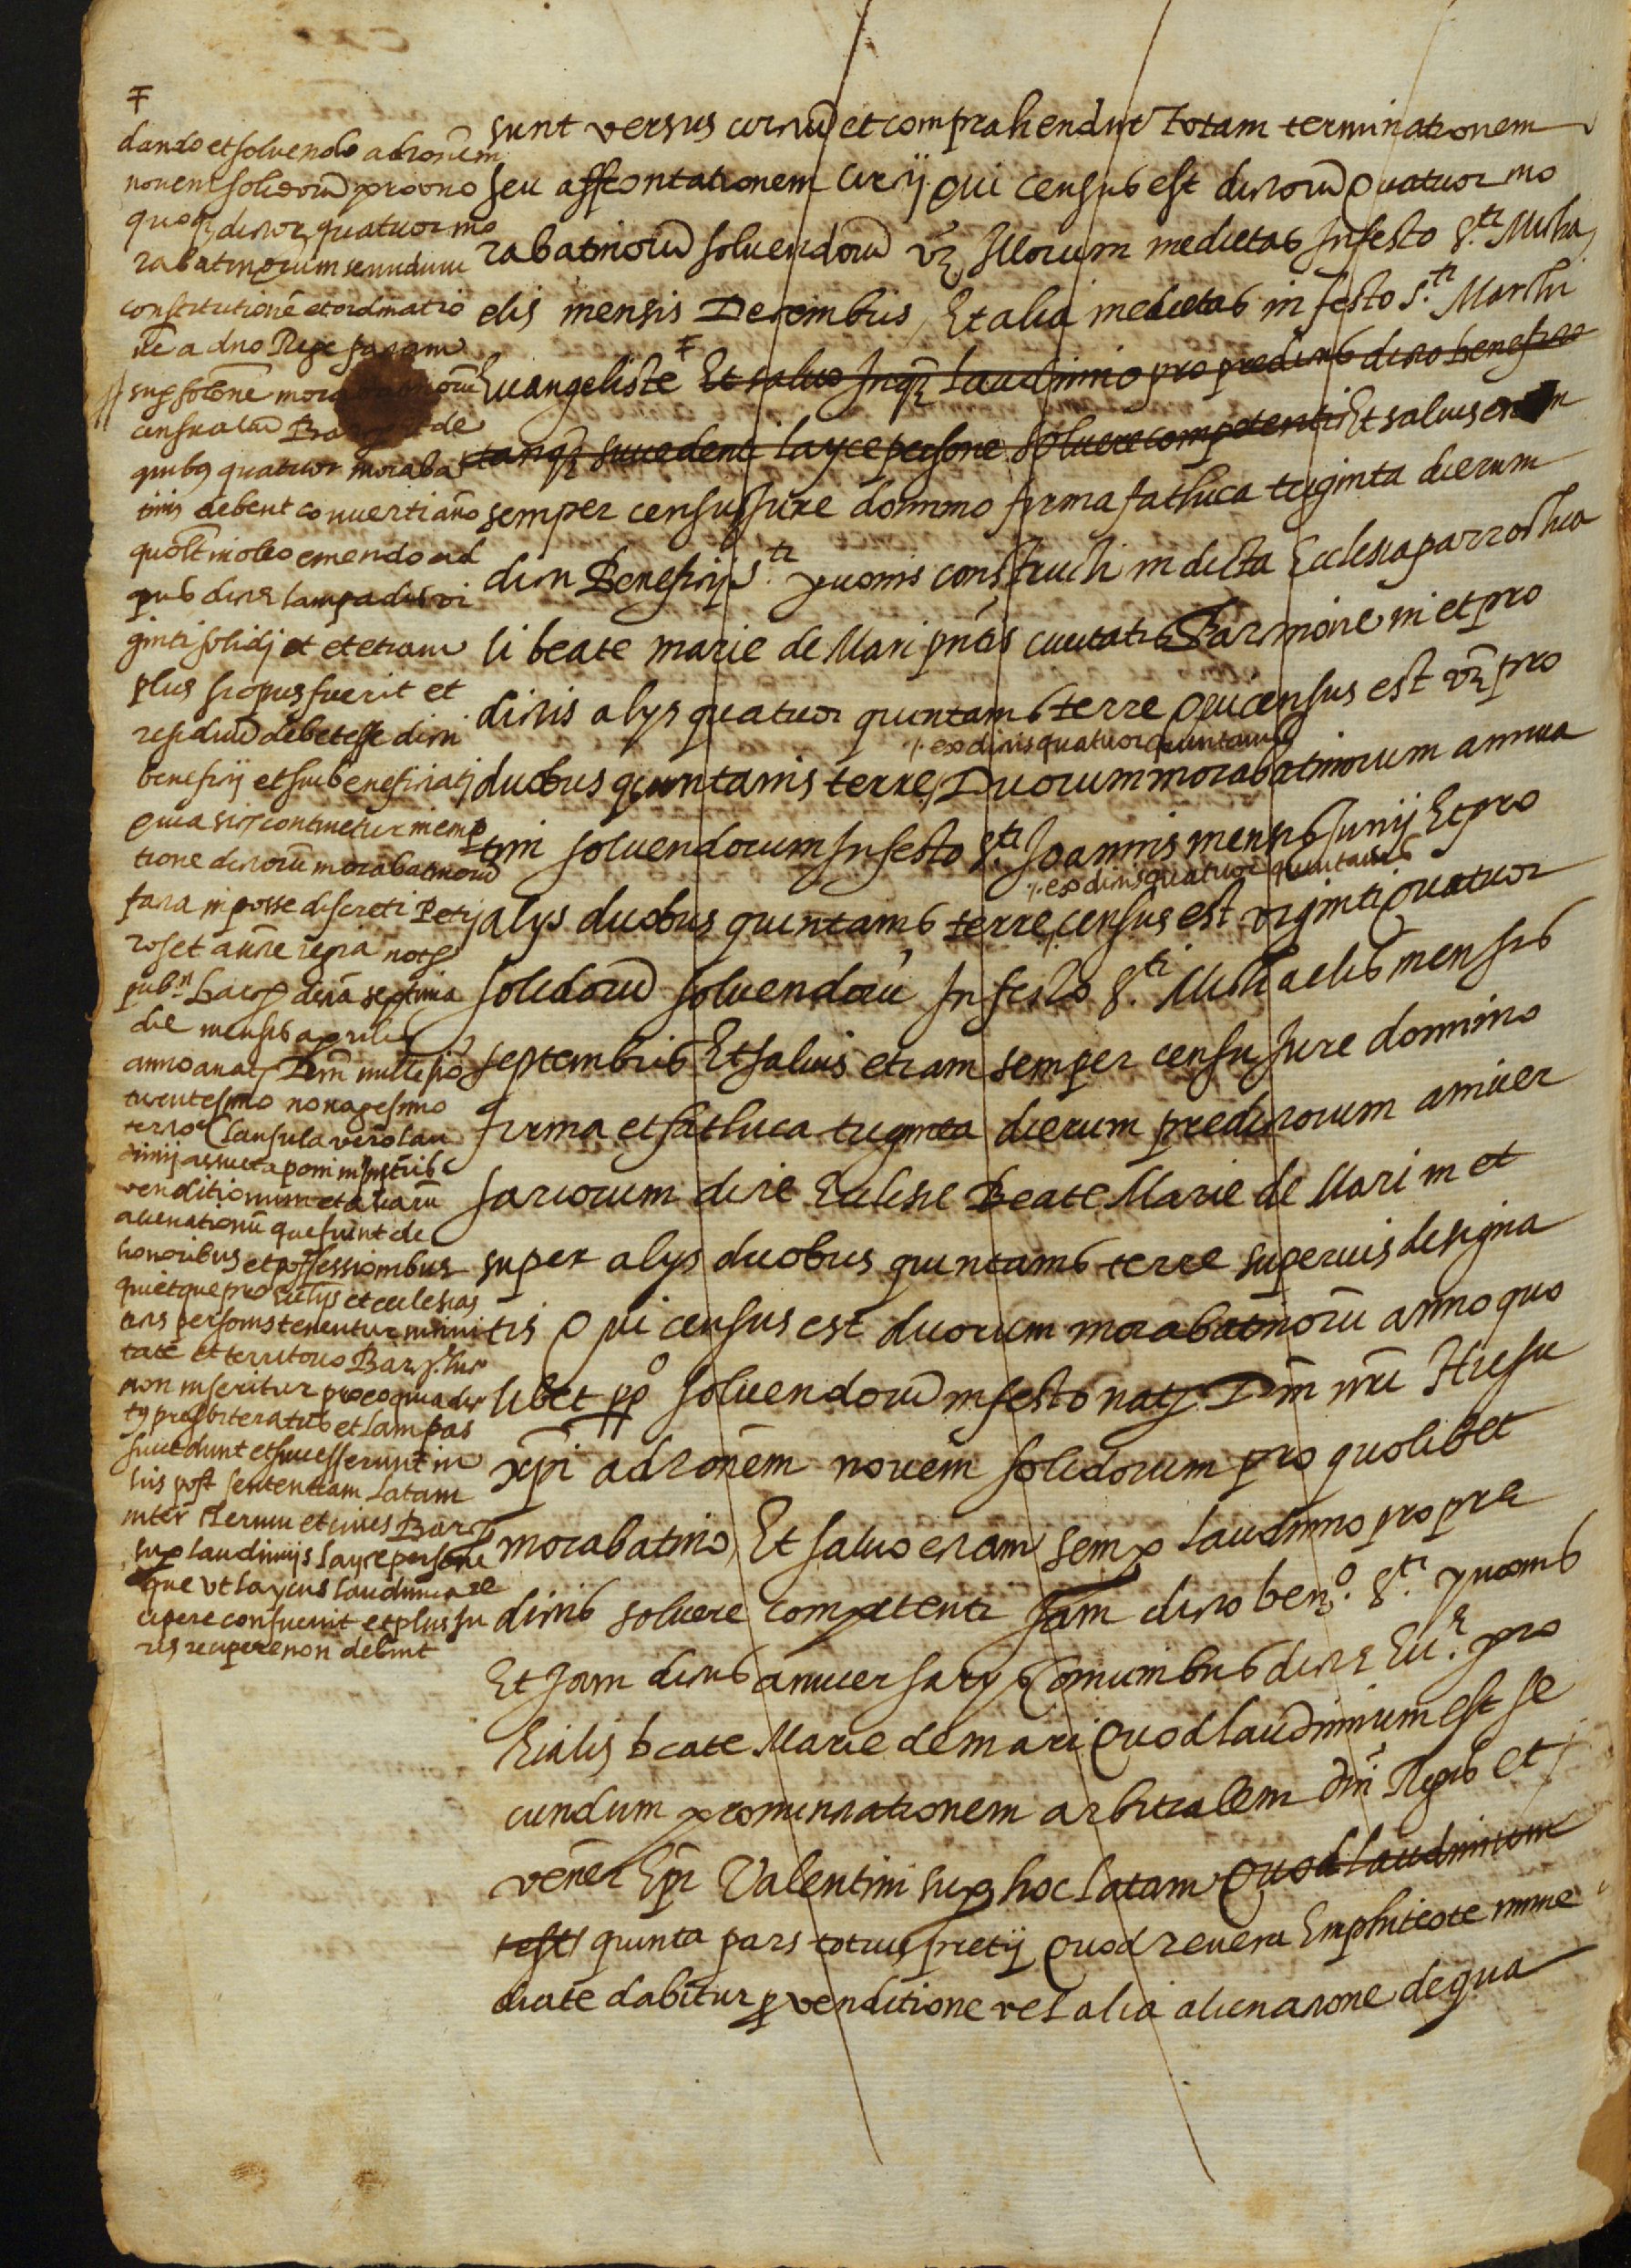 Ŧ
dando et solvendo ad rõnem
novem solidorũ pro vno
quoq; dictor quatuor mo
rabatinorum secundum
constitutionẽ et ordinatio
nẽ a dño Rege factam
sup solõne morabatinorũ
censualiũ de
quibq quatuor moraba
tinis debent converti año
quolt in oleo emendo ad
opus dicte lampadis vi
ginti solidj et etiam
plus si opus fuerit et
residuũ debet esse dicti
beneficij et sui beneficiatj
quia sic continetur in emp
tione dictorũ morabatinorũ
facta in posse discreti Petrj
Roset aucte regia notj
pub.ci Barcỹ dictã septima
die mensis aprilis
anno a natj Dñi millesiõ
trecentesimo nonagesimo
tertio Clausula vero lau
dimij assueta poni in Instrib
venditionum et aliarũ
alienationũ que fiunt de
honoribus et possessionibus
qui et que pro Ecclijs et ecclesias
ticis personis tenentur in civi
tate et territorio Barcỹ. hic
non inseritur pro eo quia dic
tq presbiteratus et lampas
succedunt et successerunt in
his post sententiam latam
inter Clerum et cives Barcỹ
sup laudimijs layce persone
que vt laycus laudimia re
cipere consuevit et plus Ju
ris recipere non debent
sunt versus circiũ et comprahendũt totam terminationem
seu affrontationem circij Qui census est dictorũ Quatuor mo
rabatinorũ solvendorũ vz Illorum medietas In festo S.ti Micha
elis mensis Decembris, Et alia medietas in festo S.ti Marchi
Evangeliste Ŧ Et salvo Inqz laudimio pro predictis dicto beneficio
tanqz succedenti layce persone solvere competenti Et salvis etiam
semper censu Jure dominio firma fathica triginta dierum
dicti Beneficij S.ti yvonis constructi in dicta Ecclesia parrochia
li beate marie de Mari pñtis civitatis Barcinone in et pro
dictis alijs quatuor quintanis terre Qui census est vz pro
·/· ex dictis quatuor quintanis
duobus quintanis terre, Duorum morabatinorum annua
tim solvendorum In festo S.ti Joannis mensis Junij Et pro
·/· ex dictis quatuor quintanis
alijs duobus quintanis terre, census est viginti Quatuor
solidorũ solvendorũ In festo S.ti Michaelis mensis
septembris Et salvis etiam semper censu Jure dominio
firma et fathica triginta dierum predictorum aniver
sariorum dicte Ecclesie Beate Marie de Mari in et
super alijs duobus quintanis terre superius designa
tis Qui census est duorum morabatinorũ anno quo
libet ppº solvendorũ in festo natj Dñi nrĩ Hiesu
xpĩ ad rõnem novem solidorum pro quolibet
morabatino, Et salvo etiam semp laudimio pro pre
dictis solvere competenti Jam dicto ben.º S.ti yvonis
Et Jam dictis aniversarijs Comunibus dicte Ecc.e pro
chialis beate Marie de mari Quod laudimium est se
cundum prominciationem arbitralem dñi Regis et
vener Epĩ Valentini sup hoc latam Quod laudimium
est quinta pars totius pretij Quod revera Emphiteote imme
diate dabitur p venditione vel alia alienatione de qua